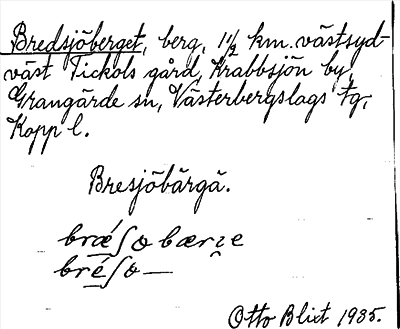 Bredsjöberget, berg, 1½ km. västsyd-
väst Tickols gård, Krabbsjön by,
Grangärde sn, Västerbergslags tg,
Kopp l.
Bresjöbärgä.
Otto Blixt 1935.